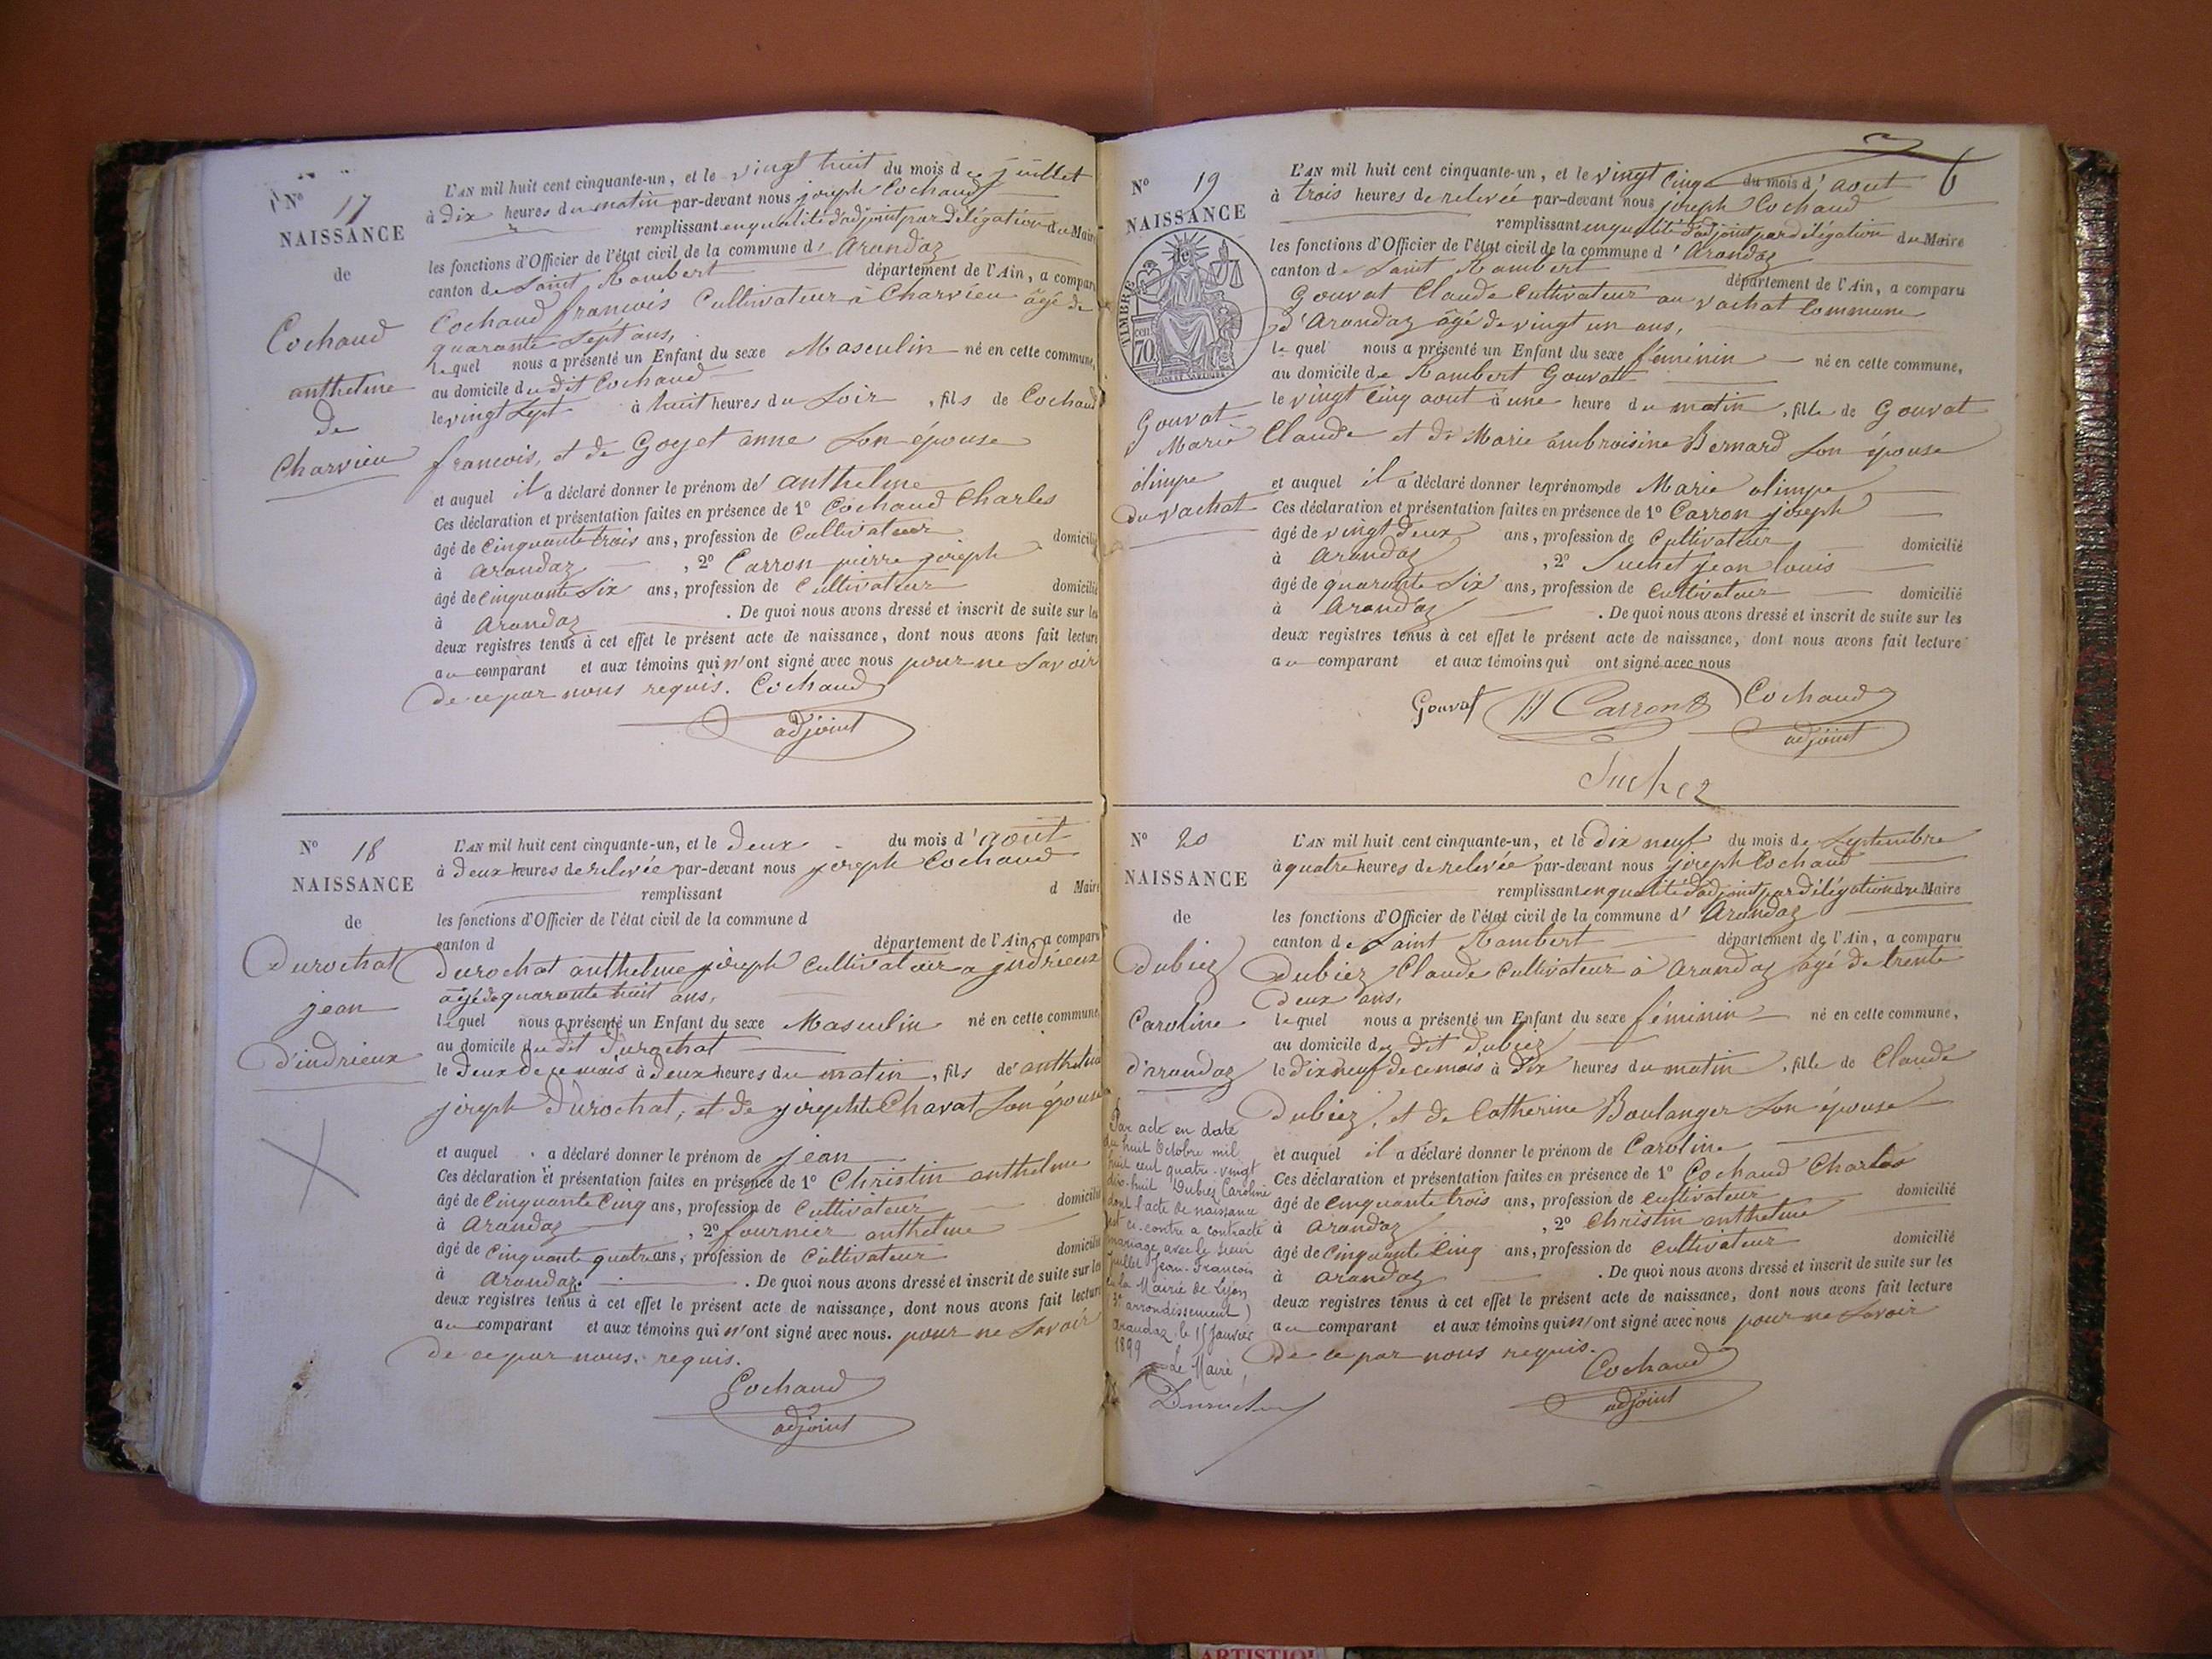 N° 17
NAISSANCE
de
Cochaud
anthelme
de
Charvieu
L'AN mil huit cent cinquante-un, et le vingt huit du mois de juillet
à dix heures du matin par-devant nous joseph Cochaud
remplissant en qualité d'adjoint par délégation du Maire
les fonctions d'Officier de l'état civil de la commune d'Arandaz
canton de Saint Rambert département de l'Ain, a comparu
Cochaud francois Cultivateur à Charvieu âgé de
quarante sept ans,
lequel nous a présenté un Enfant du sexe Masculin né en cette commune,
au domicile du dit Cochaud
le vingt sept à huit heures du soir, fils de Cochaud
francois, et de Goyet anne son épouse
et auquel il a déclaré donner le prénom de anthelme
Ces déclaration et présentation faites en présence de 1° Cochaud Charles
âgé de cinquante trois ans, profession de Cultivateur domicilié
à arandaz, 2° Carron pierre joseph
âgé de cinquante six ans, profession de Cultivateur domicilié
à arandaz. De quoi nous avons dressé et inscrit de suite sur les
deux registres tenus à cet effet le présent acte de naissance, dont nous avons fait lecture
au comparant et aux témoins qui n'ont signé avec nous pour ne savoir
de ce par nous requis. Cochaud
adjoint
N° 18
NAISSANCE
de
Durochat
jean
d'indrieux
L'AN mil huit cent cinquante-un, et le deux du mois d'aout
à deux heures de relevée par-devant nous joseph Cochaud
remplissant d Maire
les fonctions d'Officier de l'état civil de la commune d
canton d département de l'Ain, a comparu
Durochat anthelme joseph Cultivateur a indrieux
âgé de quarante huit ans,
lequel nous a présenté un Enfant du sexe Masculin né en cette commune,
au domicile du dit Durochat
le deux de ce mois à deux heures du matin, fils de anthelme
joseph Durochat, et de josephte Chavat son épouse
et auquel a déclaré donner le prénom de jean
Ces déclaration et présentation faites en présence de 1° Christin anthelme
âgé de cinquante cinq ans, profession de Cultivateur domicilié
à arandaz, 2° fournier anthelme
âgé de cinquante quatre ans, profession de Cultivateur domicilié
à arandaz. De quoi nous avons dressé et inscrit de suite sur les
deux registres tenus à cet effet le présent acte de naissance, dont nous avons fait lecture
au comparant et aux témoins qui n'ont signé avec nous. pour ne savoir
de ce par nous requis.
Cochaud
adjoint
6
N° 19
NAISSANCE
de
TIMBRE
cen
70
Gouvat
Marie
olimpe
du vachat
L'AN mil huit cent cinquante-un, et le vingt cinq du mois d'aout
à trois heures de relevée par-devant nous joseph Cochaud
remplissant en qualité d'adjoint par délégation du Maire
les fonctions d'Officier de l'état civil de la commune d'Arandaz
canton de Saint Rambert département de l'Ain, a comparu
Gouvat Claude Cultivateur au vachat Commune
d'Arandaz âgé de vingt un ans,
lequel nous a présenté un Enfant du sexe féminin né en cette commune,
au domicile de Rambert Gouvat
le vingt cinq aout à une heure du matin, fille de Gouvat
Claude et de Marie ambroisine Bernard son épouse
et auquel il a déclaré donner les prénoms de Marie olimpe
Ces déclaration et présentation faites en présence de 1° Carron joseph
âgé de vingt deux ans, profession de Cultivateur domicilié
à Arandaz, 2° Suchet jean louis
âgé de quarante six ans, profession de Cultivateur domicilié
à Arandaz. De quoi nous avons dressé et inscrit de suite sur les
deux registres tenus à cet effet le présent acte de naissance, dont nous avons fait lecture
au comparant et aux témoins qui ont signé avec nous
Gouvat Carron Cochaud
adjoint
Suchez
N° 20
NAISSANCE
de
Dubiez
Caroline
d'arandaz
L'AN mil huit cent cinquante-un, et le dix neuf du mois de septembre
à quatre heures de relevée par-devant nous joseph Cochaud
remplissant en qualité d'adjoint par délégation du Maire
les fonctions d'Officier de l'état civil de la commune d'Arandaz
canton de Saint Rambert département de l'Ain, a comparu
Dubiez Claude Cultivateur à Arandaz âgé de trente
deux ans,
lequel nous a présenté un Enfant du sexe féminin né en cette commune,
au domicile du dit Dubiez
le dix neuf de ce mois à dix heures du matin, fille de Claude
Dubiez, et de Catherine Boulanger son épouse
et auquel il a déclaré donner le prénom de Caroline
Ces déclaration et présentation faites en présence de 1° Cochaud Charles
âgé de cinquante trois ans, profession de cultivateur domicilié
à arandaz, 2° Christin anthelme
âgé de cinquante cinq ans, profession de cultivateur domicilié
à arandaz. De quoi nous avons dressé et inscrit de suite sur les
deux registres tenus à cet effet le présent acte de naissance, dont nous avons fait lecture
au comparant et aux témoins qui n'ont signé avec nous pour ne savoir
de ce par nous requis.
Cochaud
adjoint
Par acte en date
du huit Octobre mil
huit cent quatre-vingt
dix-huit Dubiez Caroline
dont l'acte de naissance
est ci-contre a contracté
mariage avec le sieur
Juillet Jean-François
à la Mairie de Lyon
(3e arrondissement)
Arandaz le 15 Janvier
1899
Le Maire,
ARTISTIQ